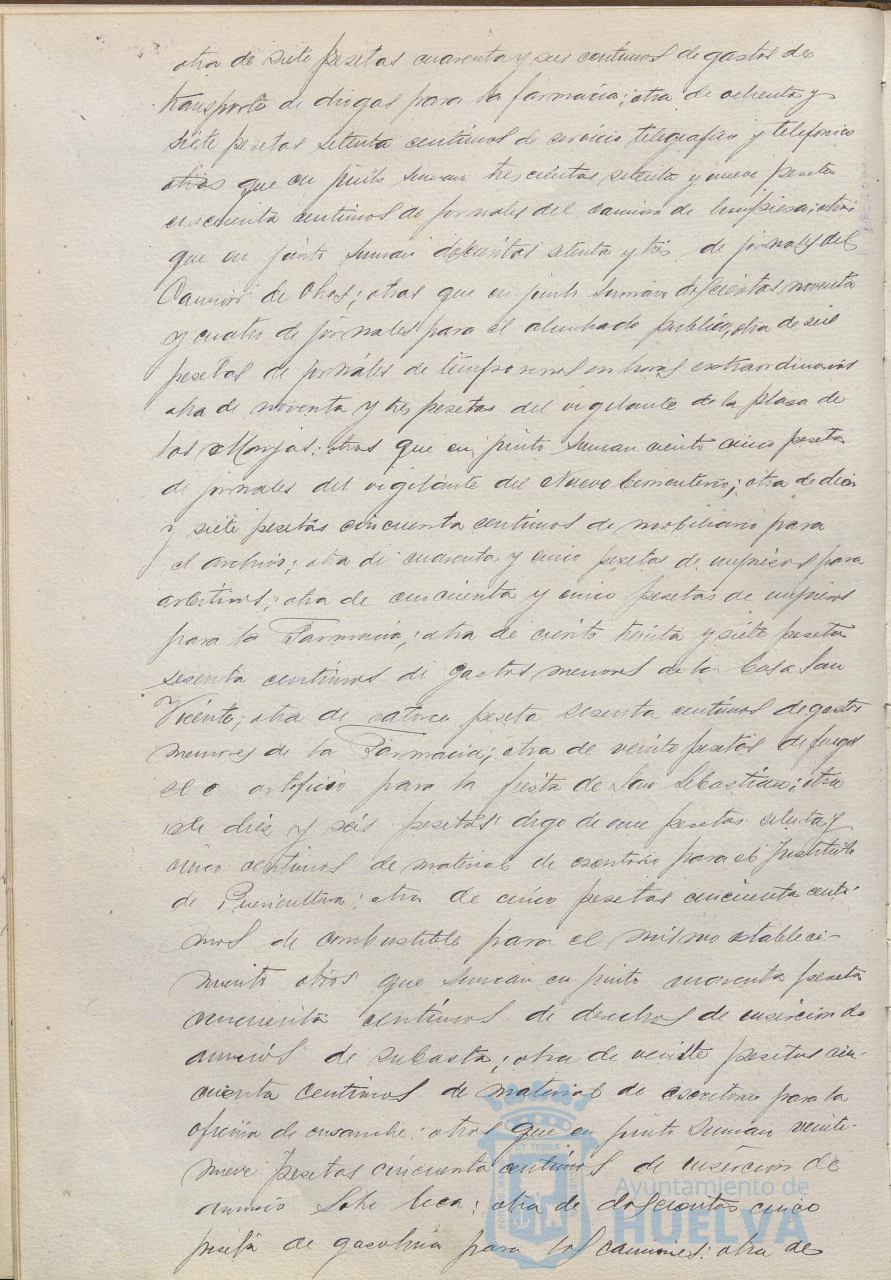 otra de siete pesetas cuarenta y seis centimos de gastos de
transporte de drogas para la farmacia; otra de ochenta y
siete pesetas setenta centimos de servicio telegrafico y telefonico
otras que en junto suman trescientas setenta y nueve peseta
cincuenta centimos de jornales del camion de limpiesa; otras
que en junto suman doscientas setenta y tres de jornales del
Camion de Obras; otras que en junto suman doscientas noventa
y cuatro de jornales para el alumbrado publico, otra de seis
pesetas de jornales de temporeros en horas extraordinarias
otra de noventa y tres pesetas del vigilante de la plasa de
las Monjas; otras que en junto suman ciento cinco peseta
de jornales del vigilante del Nuevo Cementerio; otra de diez
y siete pesetas cincuenta centimos de mobiliario para
el archivo; otra de cuarenta y cinco pesetas de impresos para
arbitrios; otra de cincuenta y cinco pesetas de impresos
para la Farmacia; otra de ciento treinta y siete peseta
sesenta centimos de gastos menores de la Casa San
Vicente; otra de catorce peseta sesenta centimos de gastos
menores de la Farmacia; otra de veinte pesetas de fuegos
artificio para la fiesta de San Sebastian; otra
de diez y seis pesetas digo de once pesetas setenta y
cinco centimos de material de escritorio para el Instituto
de Puericultura; otra de cinco pesetas cincuenta centi-
mos de combustible para el mismo estableci-
miento otros que suman en junto cuarenta peseta
cincuenta centimos de derechos de insercion de
anuncios de subasta; otra de veinte pesetas cin-
cuenta centimos de material de escritorio para la
oficina de ensanche; otras que en junto suman veinte-
nueve pesetas cincuenta centimos de insercion de
anuncio sobre beca; otra de doscientas cinco
peseta de gasolina para los camiones; otra de
Ayuntamiento de
HUELVA